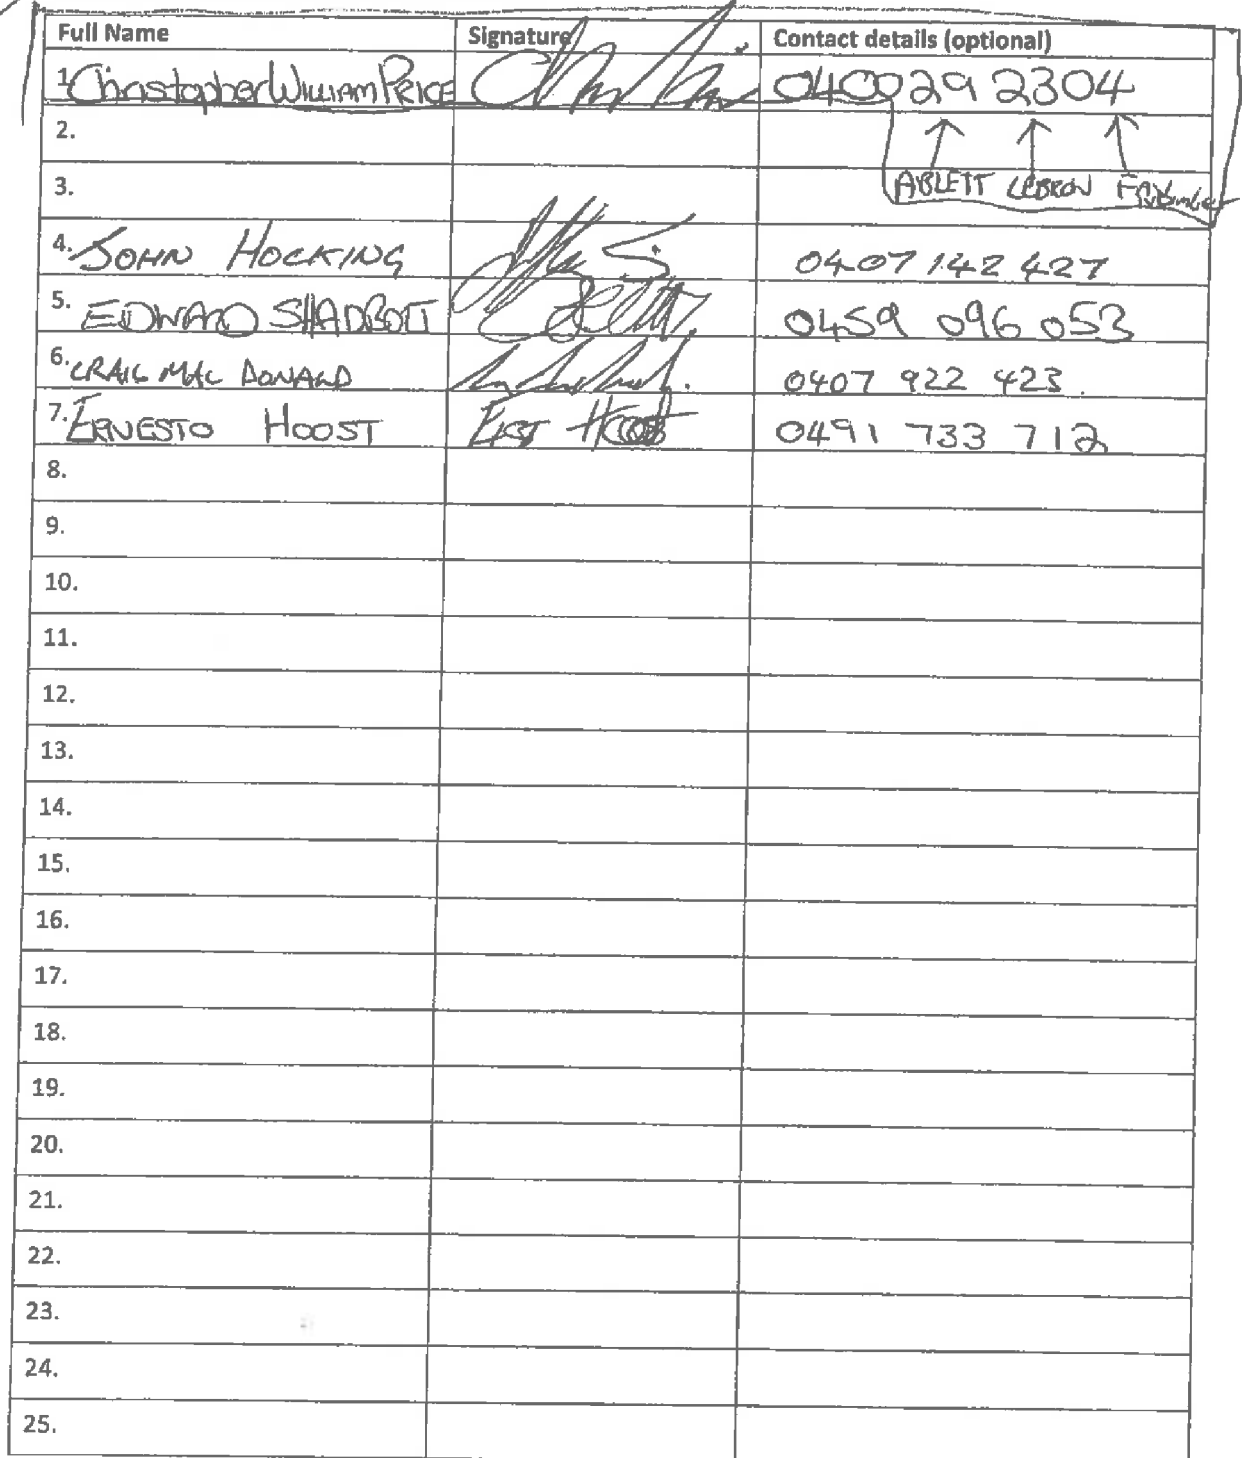 Full Name Signature Contact details (optional)
1. Christopher William Price 0400 29 2304
2.
ABLETT LEBRON
3.
4. John Hocking 0407 142 427
5. EDWARD SHADBOLT 0459 096 053
6. CRAIG MAC DONALD 0407 922 423.
7. ERNESTO HOOST 0491 733 712
8.
9.
10.
11.
12.
13.
14.
15.
16.
17.
18.
19.
20.
21.
22.
23.
24.
25.